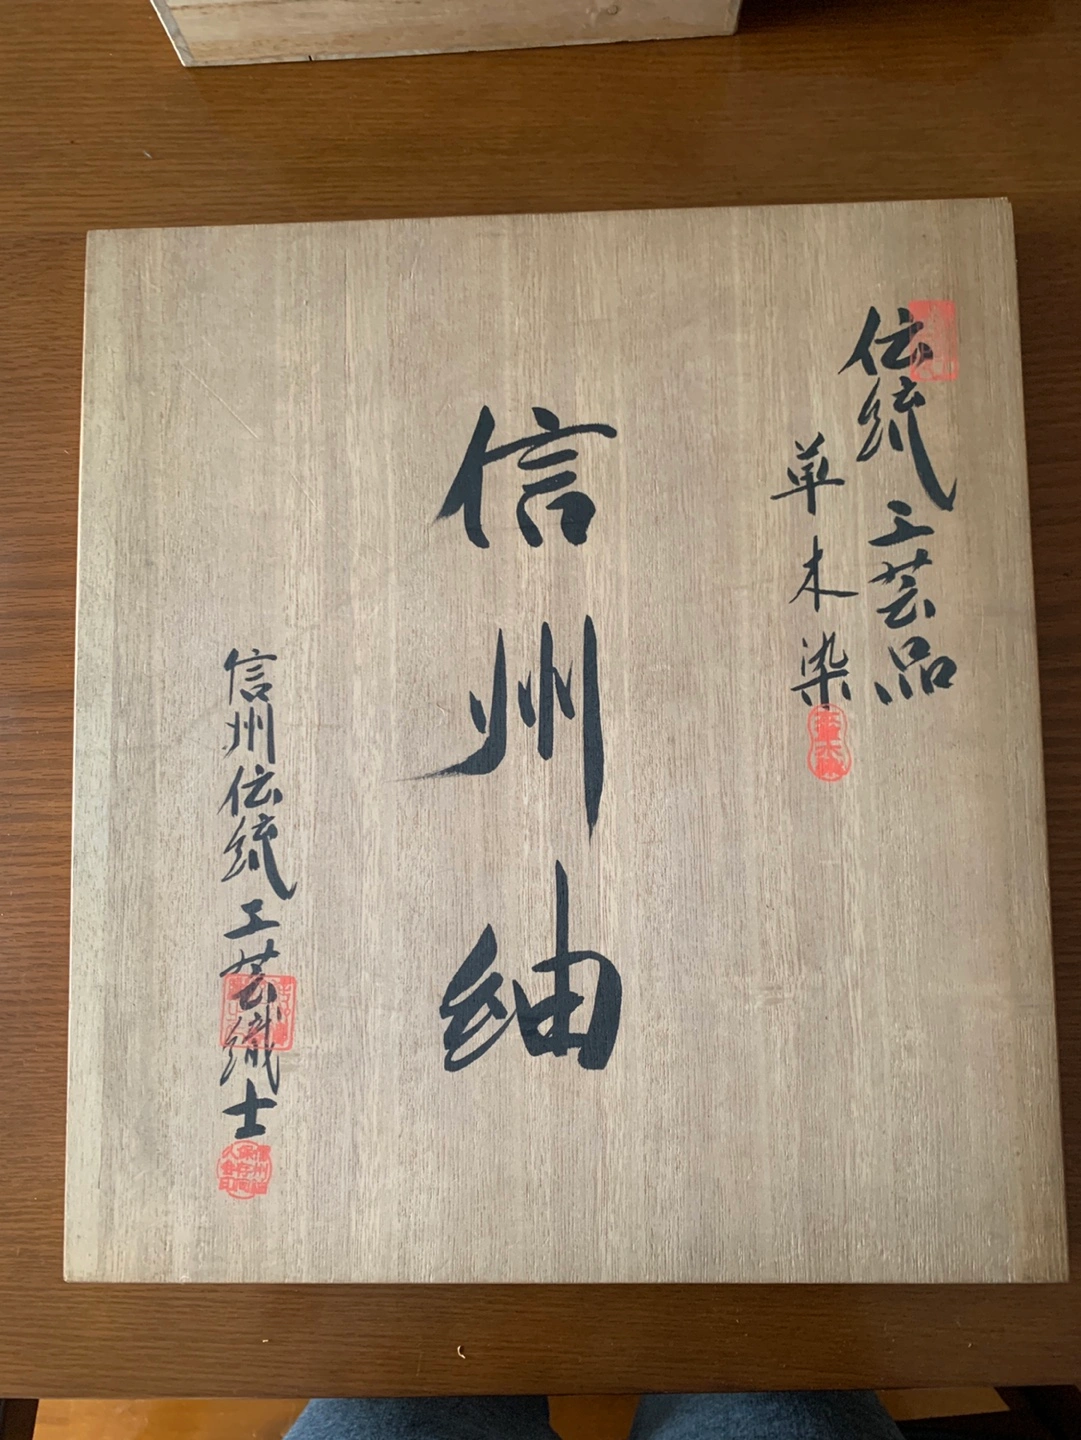 伝統工芸品
草木染
信州紬
信州伝統工芸織士